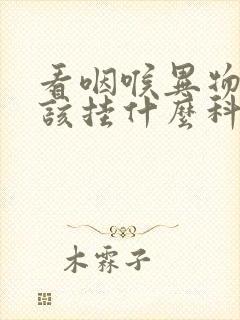 看咽喉異物
該挂什麼科
木霖子